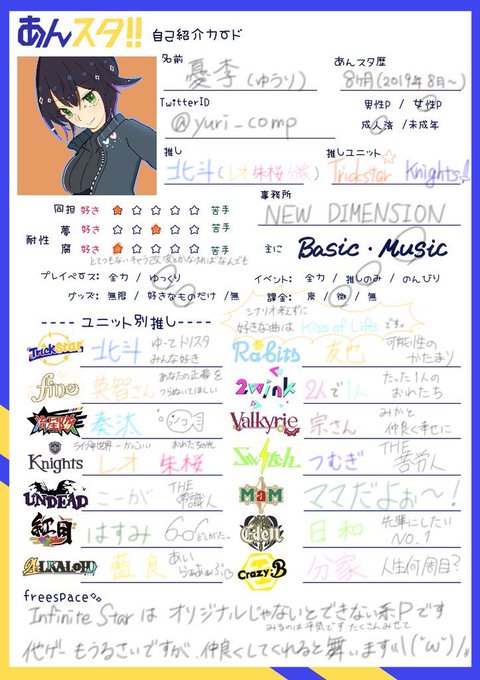 あんスタ!! 自己紹介カード
名前
憂李(ゆうり)
あんスタ歴
8ヶ月(2019年8月~)
TwitterID
@yuri_comp
男性P / 女性P
成人済 / 未成年
推し
北斗(レオ 朱桜 分家)
推しユニット
Trickstar☆ Knights
事務所
NEW DIMENSION
耐性
同担 好き ★☆☆☆☆ 苦手
夢 好き ☆☆★☆☆ 苦手
腐 好き ★☆☆☆☆ 苦手
主に Basic・Music
プレイペース: 全力 / ゆっくり
イベント: 全力 / 推しのみ / のんびり
グッズ: 無限 / 好きなものだけ / 無
課金: 廃 / 微 / 無
シナリオ
好きな曲は Kiss of Life です。
ユニット別推し
Trickstar 北斗 ゆーてトリスタ みんな好き
Ra*bits 友也 可能性の かたまり
fine 英智さん あなたの正義を
2wink 2人で1人 たった1人の おれたち
流星隊 奏汰
Valkyrie 宗さん みかと 仲良く幸せに
Knights レオ 朱桜
Switch つむぎ THE 苦労人
UNDEAD こーが THE 常識人
MaM ママだよぉ〜!
紅月 はすみ
Eden 日和 先輩にしたい NO.1
ALKALOID 藍良 あい らぁぶ
Crazy:B 分家 人生何周目?
freespace
Infinite Star は オリジナルじゃないとできない系Pです
みるのは平気です たくさんみせて
他ゲーもうるさいですが、仲良くしてくれると舞います